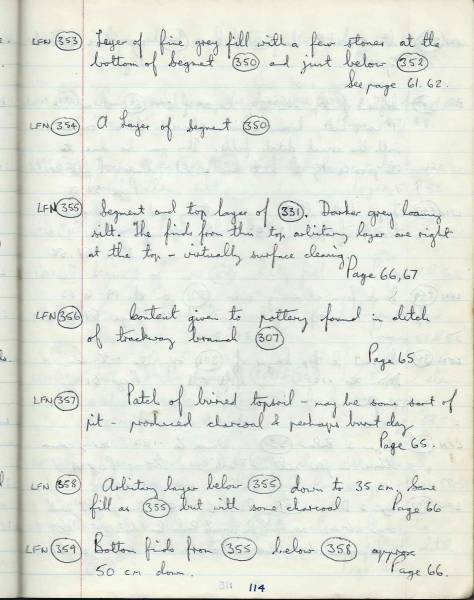 LFN 353 Layer of fine grey fill with a few stones at the
bottom of Segment 350 and just below 352
See page 61.62.
LFN 354 A Layer of Segment 350
LFN 355 Segment and top layer of 331. Darker grey loamy
silt. The finds from this top arbitrary layer are right
at the top - virtually surface cleaning
Page 66,67
LFN 356 Context given to pottery found in ditch
of trackway branch 307
Page 65
LFN 357 Patch of burned topsoil - may be some sort of
pit - produced charcoal & perhaps burnt clay
Page 65.
LFN 358 Arbitrary layer below 355 down to 35 cm. Same
fill as 355 but with some charcoal Page 66
LFN 359 Bottom finds from 355 below 358 approx
50 cm down. Page 66.
114